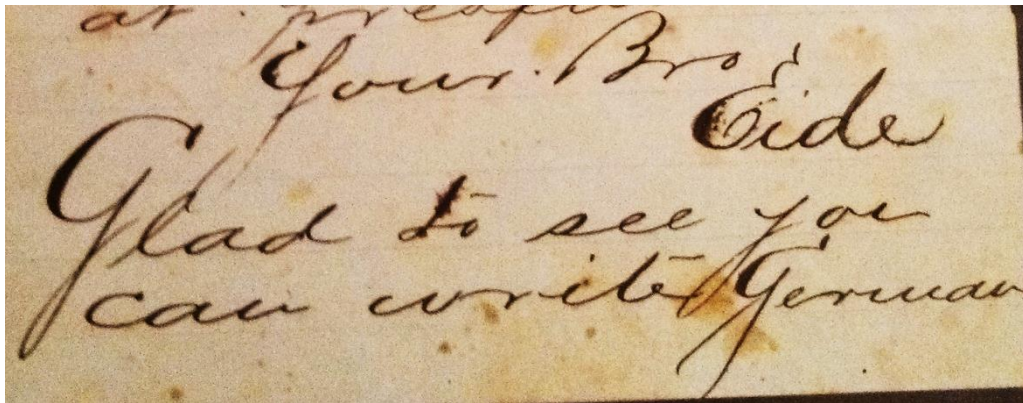 at present
Your Bro.
Eide
Glad to see you
can write German